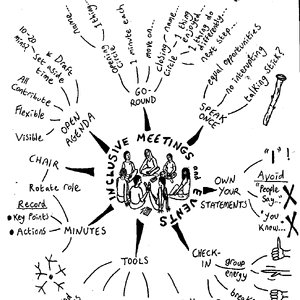 name
1 thing
opening
circle
1 minute each
move on...
closing
circle
name...
1 thing
enjoyed...
1 thing do
differently..
next step...
GO-
ROUND
equal opportunities
no interrupting
talking stick?
SPEAK
ONCE
10-20
mins!
* Draft
Set aside
time
All
Contribute
Flexible
Visible
OPEN
AGENDA
INCLUSIVE MEETINGS
and
EVENTS
CHAIR
Rotate role
Record
• Key Points
• Actions
MINUTES
OWN
YOUR
STATEMENTS
"I"!
Avoid
"People
Say..."
"you
Know..."
TOOLS
CHECK-
IN
group
energy